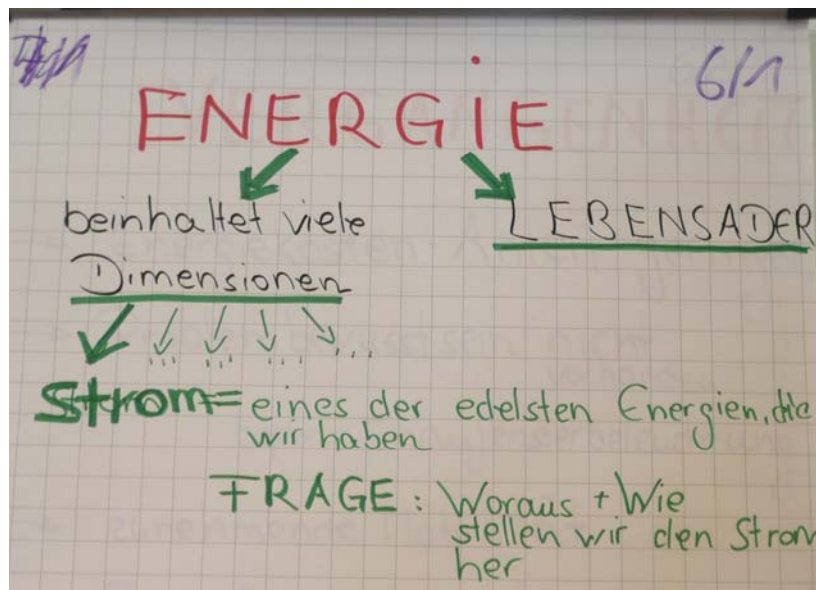 6/1
ENERGiE
beinhaltet viele
Dimensionen
LEBENSADER
... ... ... ...
Strom = eines der edelsten Energien, die
wir haben
FRAGE: Woraus + Wie
stellen wir den Strom
her